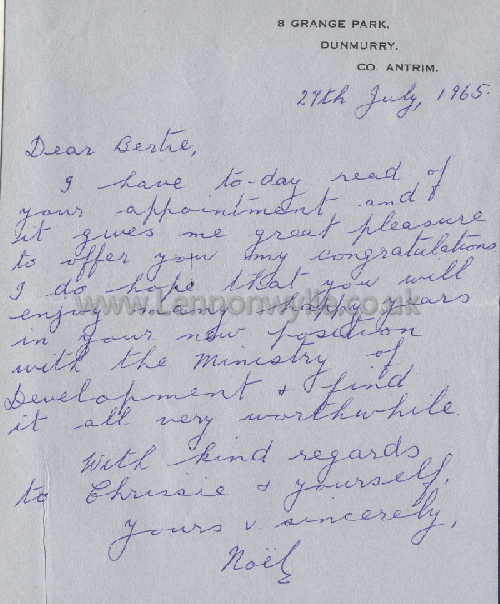 8 GRANGE PARK.
DUNMURRY.
CO. ANTRIM.
27th July, 1965.
Dear Bertie,
I have to-day read of
your appointment and
it gives me great pleasure
to offer you my congratulations
I do hope that you will
enjoy many happy years
www.Lennonwylie.co.uk
in your new position
with the Ministry of
Development & find
it all very worthwhile.
With kind regards
to Chrissie & yourself,
Yours v. sincerely,
Noël